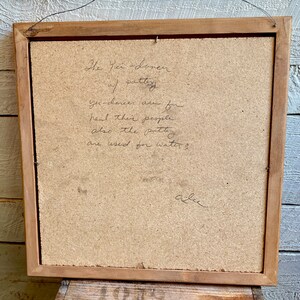 The Yei-dancer
of pottery
yei-dancer are for
heal their people
also the pottery
are used for water